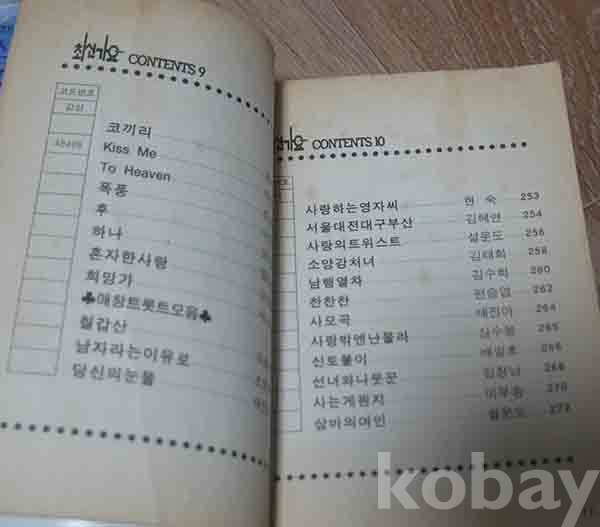 최신가요 CONTENTS 9
코드번호
감상
코끼리
Kiss Me
To Heaven
폭풍
후
하나
혼자한사랑
희망가
♣애창트롯트모음♣
칠갑산
남자라는이유로
당신의눈물
가요 CONTENTS 10
사랑하는영자씨 현 숙 253
서울대전대구부산 김혜연 254
사랑의트위스트 설운도 256
소양강처녀 김태희 258
남행열차 김수희 260
찬찬찬 편승엽 262
사모곡 태진아 264
사랑밖엔난몰라 심수봉 265
신토불이 배일호 266
선녀와나뭇꾼 김창남 268
사는게뭔지 이무송 270
삼바의여인 설운도 272
kobay